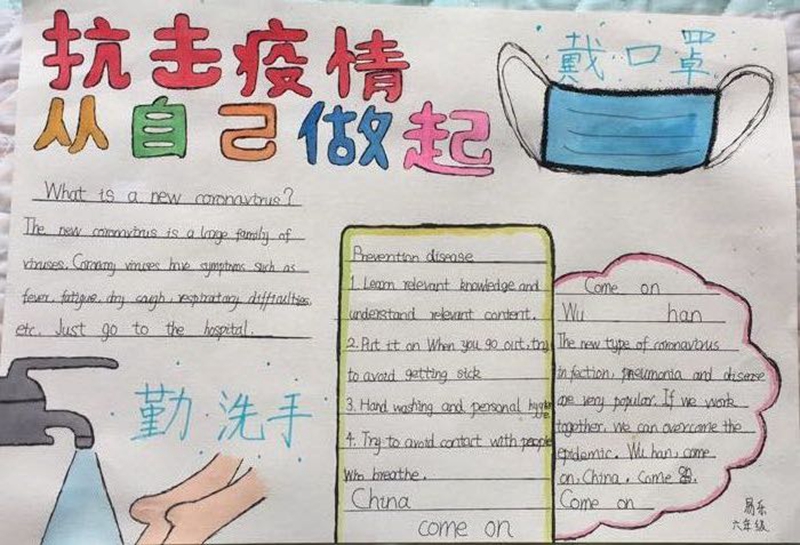 抗击疫情
从自己做起
戴口罩
What is a new coronavirus?
The new coronavirus is a large family of
viruses. Coronary viruses have symptoms such as
fever, fatigue, dry cough, respiratory difficulties,
etc. Just go to the hospital.
勤洗手
Prevention disease
1. Learn relevant knowledge and
understand relevant content.
2. Put it on When you go out, try
to avoid getting sick
3. Hand washing and personal hygiene
4. Try to avoid contact with people
who breathe.
China
come on
Come on
Wu han
The new type of coronavirus
infection, pneumonia and disease
are very popular. If we work
together, we can overcome the
epidemic. Wu han, come
on, China. Come
Come on
易乐
六年级